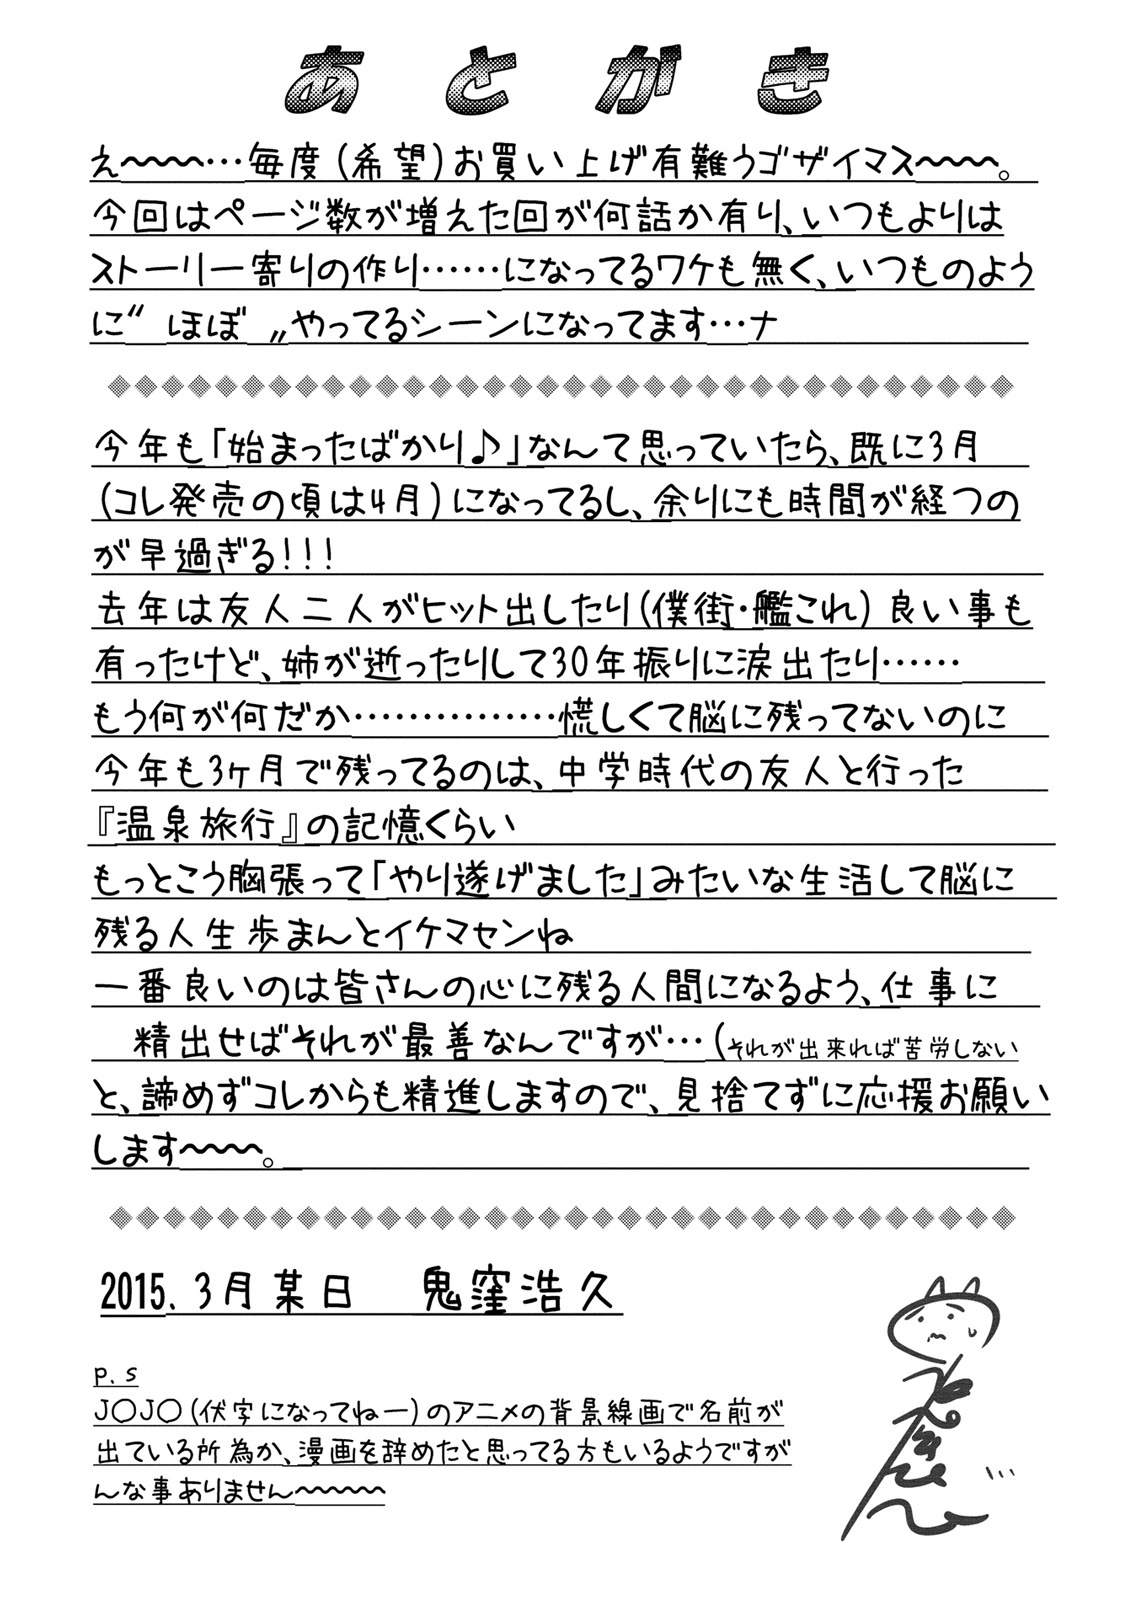 あとがき
え〜〜〜〜…毎度(希望)お買い上げ有難うゴザイマス〜〜〜〜。
今回はページ数が増えた回が何話か有り、いつもよりは
ストーリー寄りの作り……になってるワケも無く、いつものよう
に〝ほぼ〟やってるシーンになってます…ナ
今年も「始まったばかり♪」なんて思っていたら、既に3月
(コレ発売の頃は4月)になってるし、余りにも時間が経つの
が早過ぎる!!!
去年は友人二人がヒット出したり(僕街・艦これ)良い事も
有ったけど、姉が逝ったりして30年振りに涙出たり……
もう何が何だか……………慌しくて脳に残ってないのに
今年も3ヶ月で残ってるのは、中学時代の友人と行った
『温泉旅行』の記憶くらい
もっとこう胸張って「やり遂げました」みたいな生活して脳に
残る人生歩まんとイケマセンね
一番良いのは皆さんの心に残る人間になるよう、仕事に
精出せばそれが最善なんですが…(それが出来れば苦労しない
と、諦めずコレからも精進しますので、見捨てずに応援お願い
します〜〜〜〜。
2015.3月某日 鬼窪浩久
p.s
J〇J〇(伏字になってねー)のアニメの背景線画で名前が
出ている所為か、漫画を辞めたと思ってる方もいるようですが
んな事ありません〜〜〜〜〜